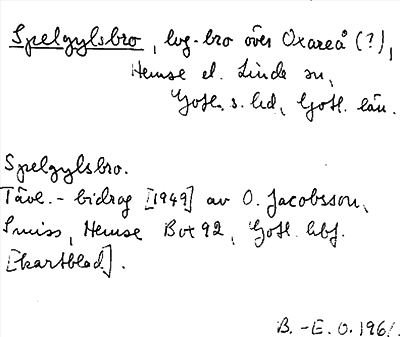 Spelgylsbro, lvg.-bro över Oxareå (?),
Hemse el. Linde sn,
Gotl. s. hd, Gotl. län.
Spelgylsbro.
Tävl.-bidrag [1949] av O. Jacobsson,
Smiss, Hemse Box 92, Gotl. hbf.
[kartblad].
B.-E. O. 196